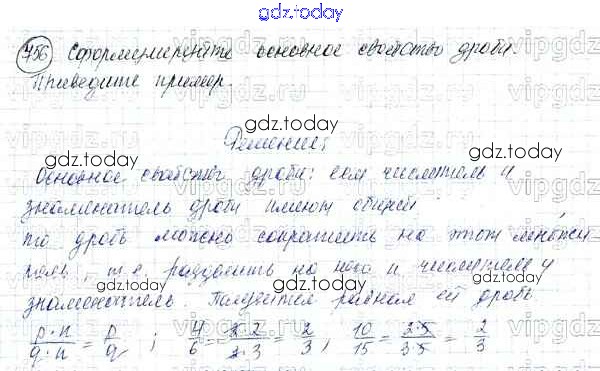 gdz.today
756 Сформулируйте основное свойство дроби.
Приведите пример.
Решение:
Основное свойство дроби: если числитель и
знаменатель дроби имеют общий
то дробь можно сократить на этот множи
тель, т.е. разделить на него и числитель и
знаменатель. Получится равная ей дробь
p·n/q·n = p/q ; 4/6 = 2·2/2·3 = 2/3, 10/15 = 2·5/3·5 = 2/3
gdz.today